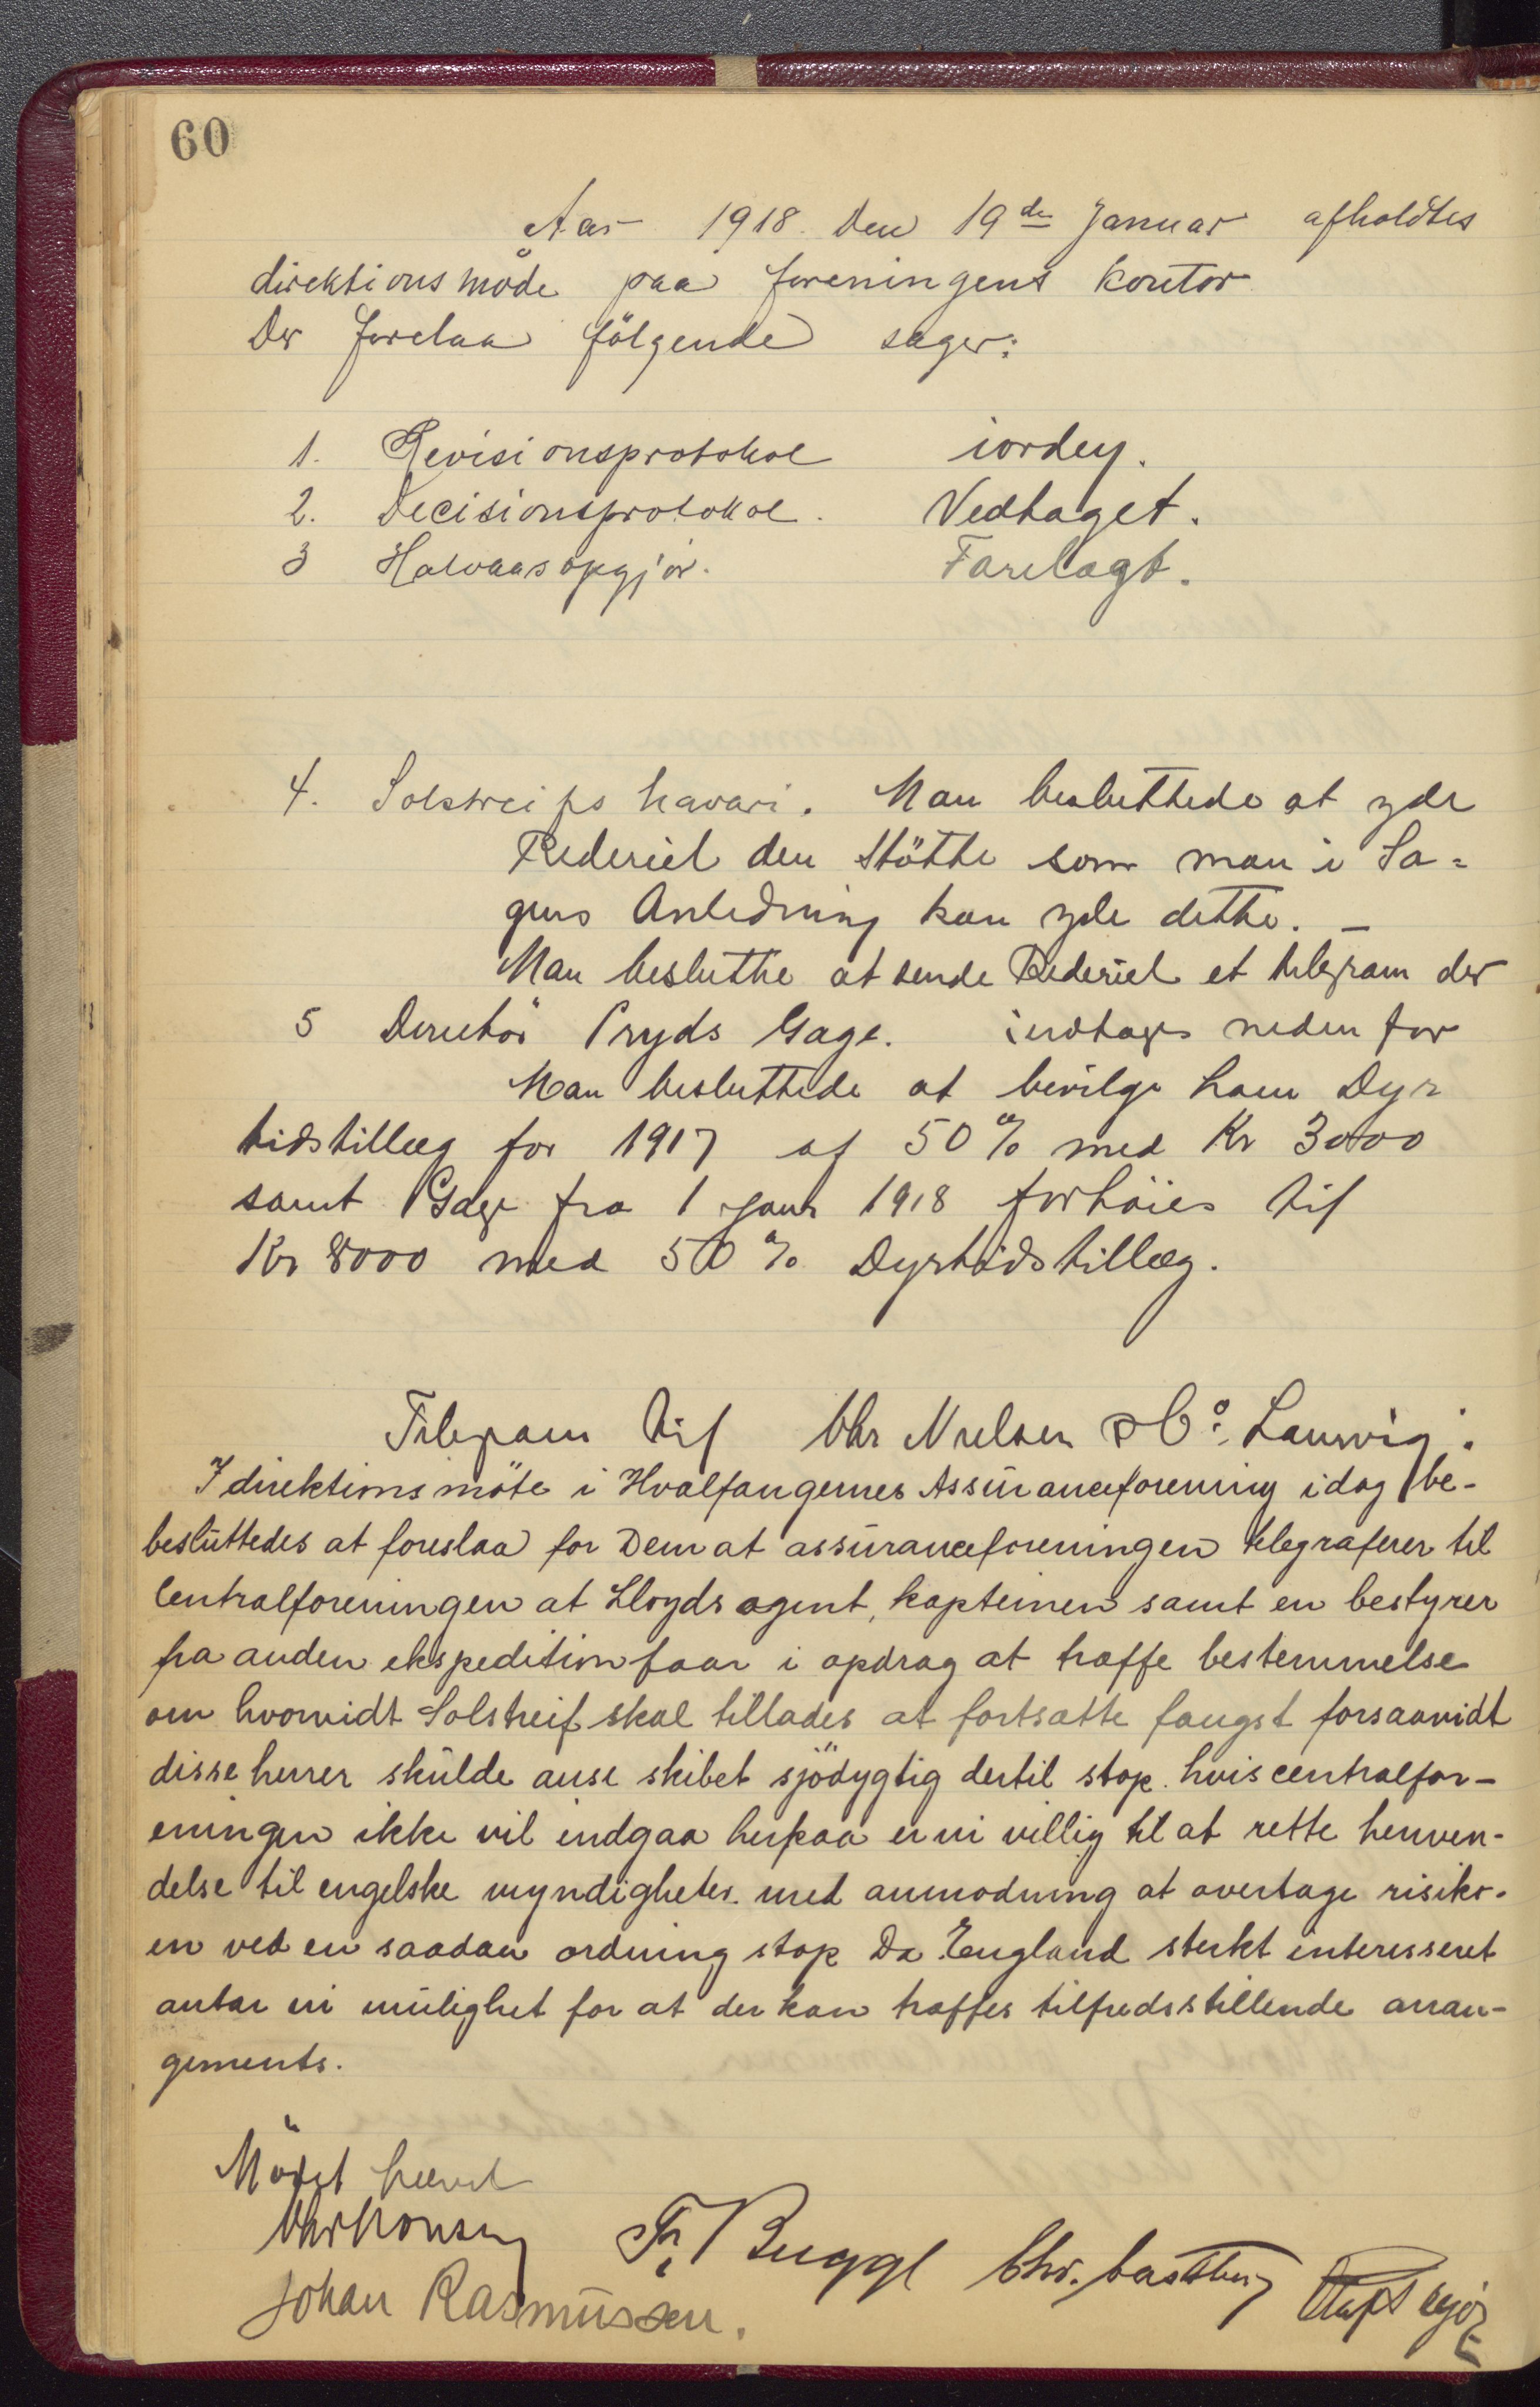 60
Aar 1918. Den 19de Januar afholdtes
direktionsmöde paa foreningens kontor
Der forelaa fölgende sager:
1. Revisionsprotokol iorden.
2. Decisionsprotokol. Vedtaget.
3 Halvaarsopgjör. Forelagt.
4. Solstreifs havari. Man besluttede at yde
Rederiet den Stötte som man i Sa=
gens Anledning kan yde dette. –
Man beslutte at sende Rederiet et telegram der
5 Direktör Pryds Gage. indtages neden for
Man besluttede at bevilge ham Dyr
tidstillæg for 1917 af 50% med Kr 3000
samt Gage fra 1 Janr 1918 forhöies til
Kr 8000 med 50% Dyrtidstillæg.
Telegram til Chr Nielsen & Co: Laurvig.
I direktionsmöte i Hvalfangernes Assuranceforening idag be-
besluttedes at foreslaa for Dem at assuranceforeningen telegraferer til
Centralforeningen at Lloyds agent, kapteinen samt en bestyrer
fra anden ekspedition faar i opdrag at træffe bestemmelse
om hvorvidt Solstreif skal tillades at fortsætte fangst forsaavidt
disse herrer skulde anse skibet sjödygtig dertil stop. hvis centralfor-
eningen ikke vil indgaa herpaa er vi villig til at rette henven-
delse til engelske myndigheter med anmodning at overtage risiko-
en ved en saadan ordning stop Da England sterkt interesseret
antar vi mulighet for at der kan træffes tilfredsstillende arran-
gements.
Mödet hævet
Johan Rasmussen.
Fr. Bugge
Chr.